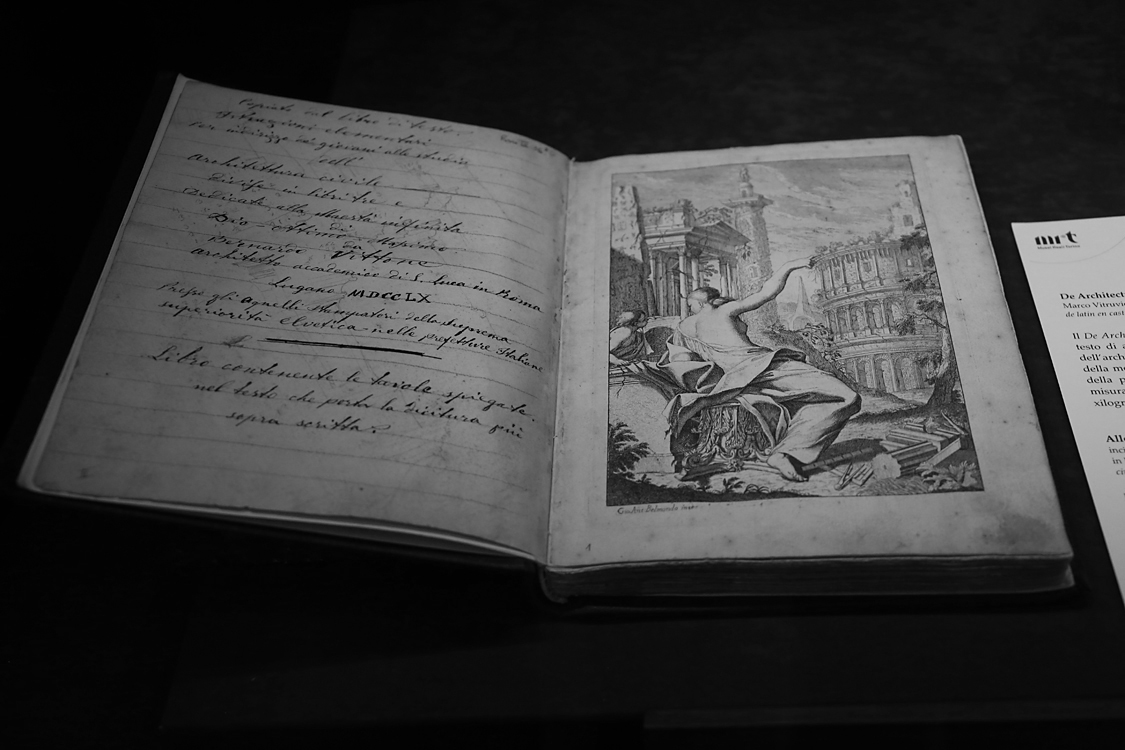 Copiato dal libro di testo
Istruzioni elementari
per indirizzo de' giovani allo studio
dell'
architettura civile
divise in libri tre e
dedicate alla Maestà infinita
di
Dio Ottimo Massimo
da
Bernardo Vittone
architetto accademico di S. Luca in Roma
Lugano MDCCLX
Presso gli Agnelli Stampatori della suprema
superiorità elvetica nelle prefetture Italiane
Libro contenente le tavole spiegate
nel testo che porta la dicitura più
sopra scritta
1
mrt
De Architect
Marco Vitruvi
de latin en cast
Il De Arch
testo di a
dell'arch
della m
della p
misura
xilogr
All
inci
in